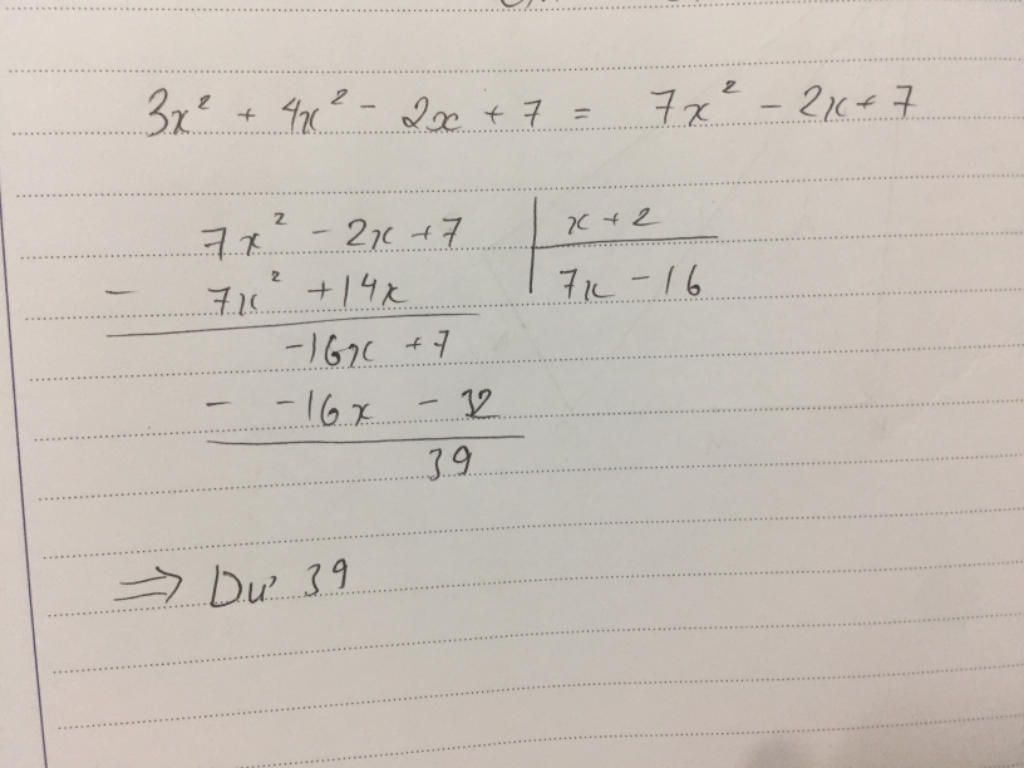 3x² + 4x² - 2x + 7 = 7x² - 2x + 7
7x² - 2x + 7 | x + 2
- 7x² + 14x | 7x - 16
-16x + 7
- -16x - 32
39
⇒ Dư 39